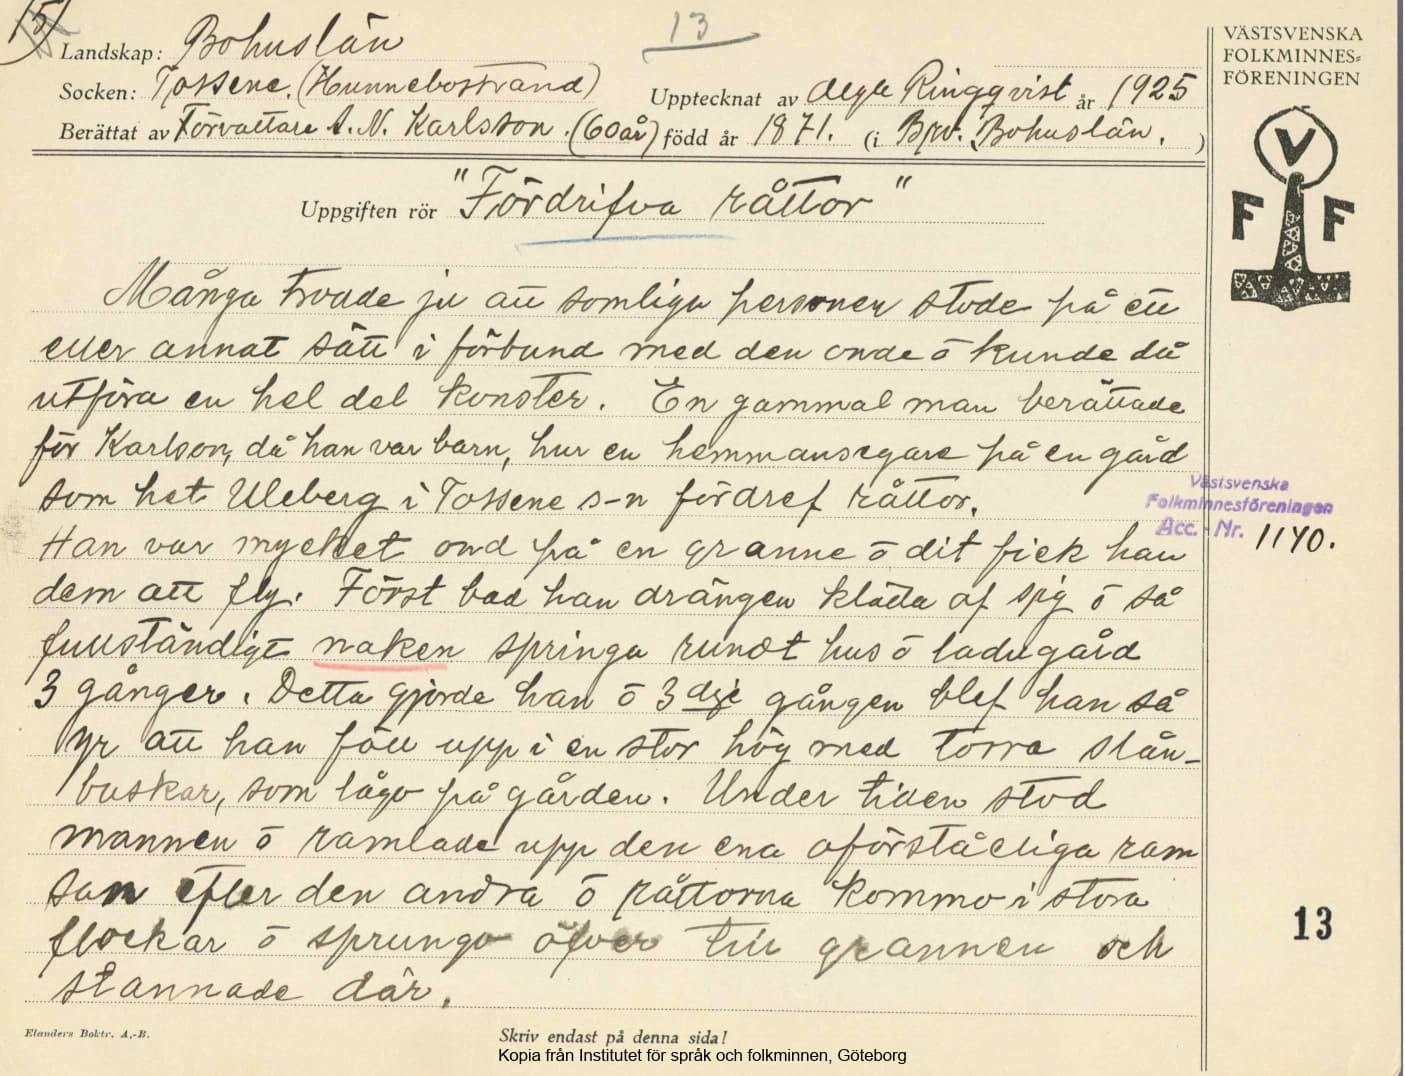 15)
13
Landskap: Bohuslän
Socken: Tossene. (Hunnebostrand) Upptecknat av Olga Ringqvist år 1925
Berättat av Förvaltare A. N. Karlsson. (60 år) född år 1871. (i Bro. Bohuslän. )
VÄSTSVENSKA
FOLKMINNES=
FÖRENINGEN
V
F F
Uppgiften rör "Fördrifva råttor"
Många trodde ju att somliga personer stode på ett
eller annat sätt i förbund med den onde o kunde då
utföra en hel del konster. En gammal man berättade
för Karlson, då han var barn, hur en hemmansegare på en gård
som het Uleberg i Tossene s-n fördref råttor.
Västsvenska
Folkminnesföreningen
Acc. - Nr. 1140.
Han var mycket ond på en granne o dit fick han
dem att fly. Först bad han drängen kläda af sig o så
fullständigt naken springa rundt hus o ladugård
3 gånger. Detta gjorde han o 3 dje gången blef han så
yr att han föll upp i en stor hög med torra slån-
buskar, som lågo på gården. Under tiden stod
mannen o ramlade upp den ena oförståeliga ram
san efter den andra o råttorna kommo i stora
flockar o sprungo öfver till grannen och
stannade där.
13
Elanders Boktr. A.-B.
Skriv endast på denna sida!
Kopia från Institutet för språk och folkminnen, Göteborg